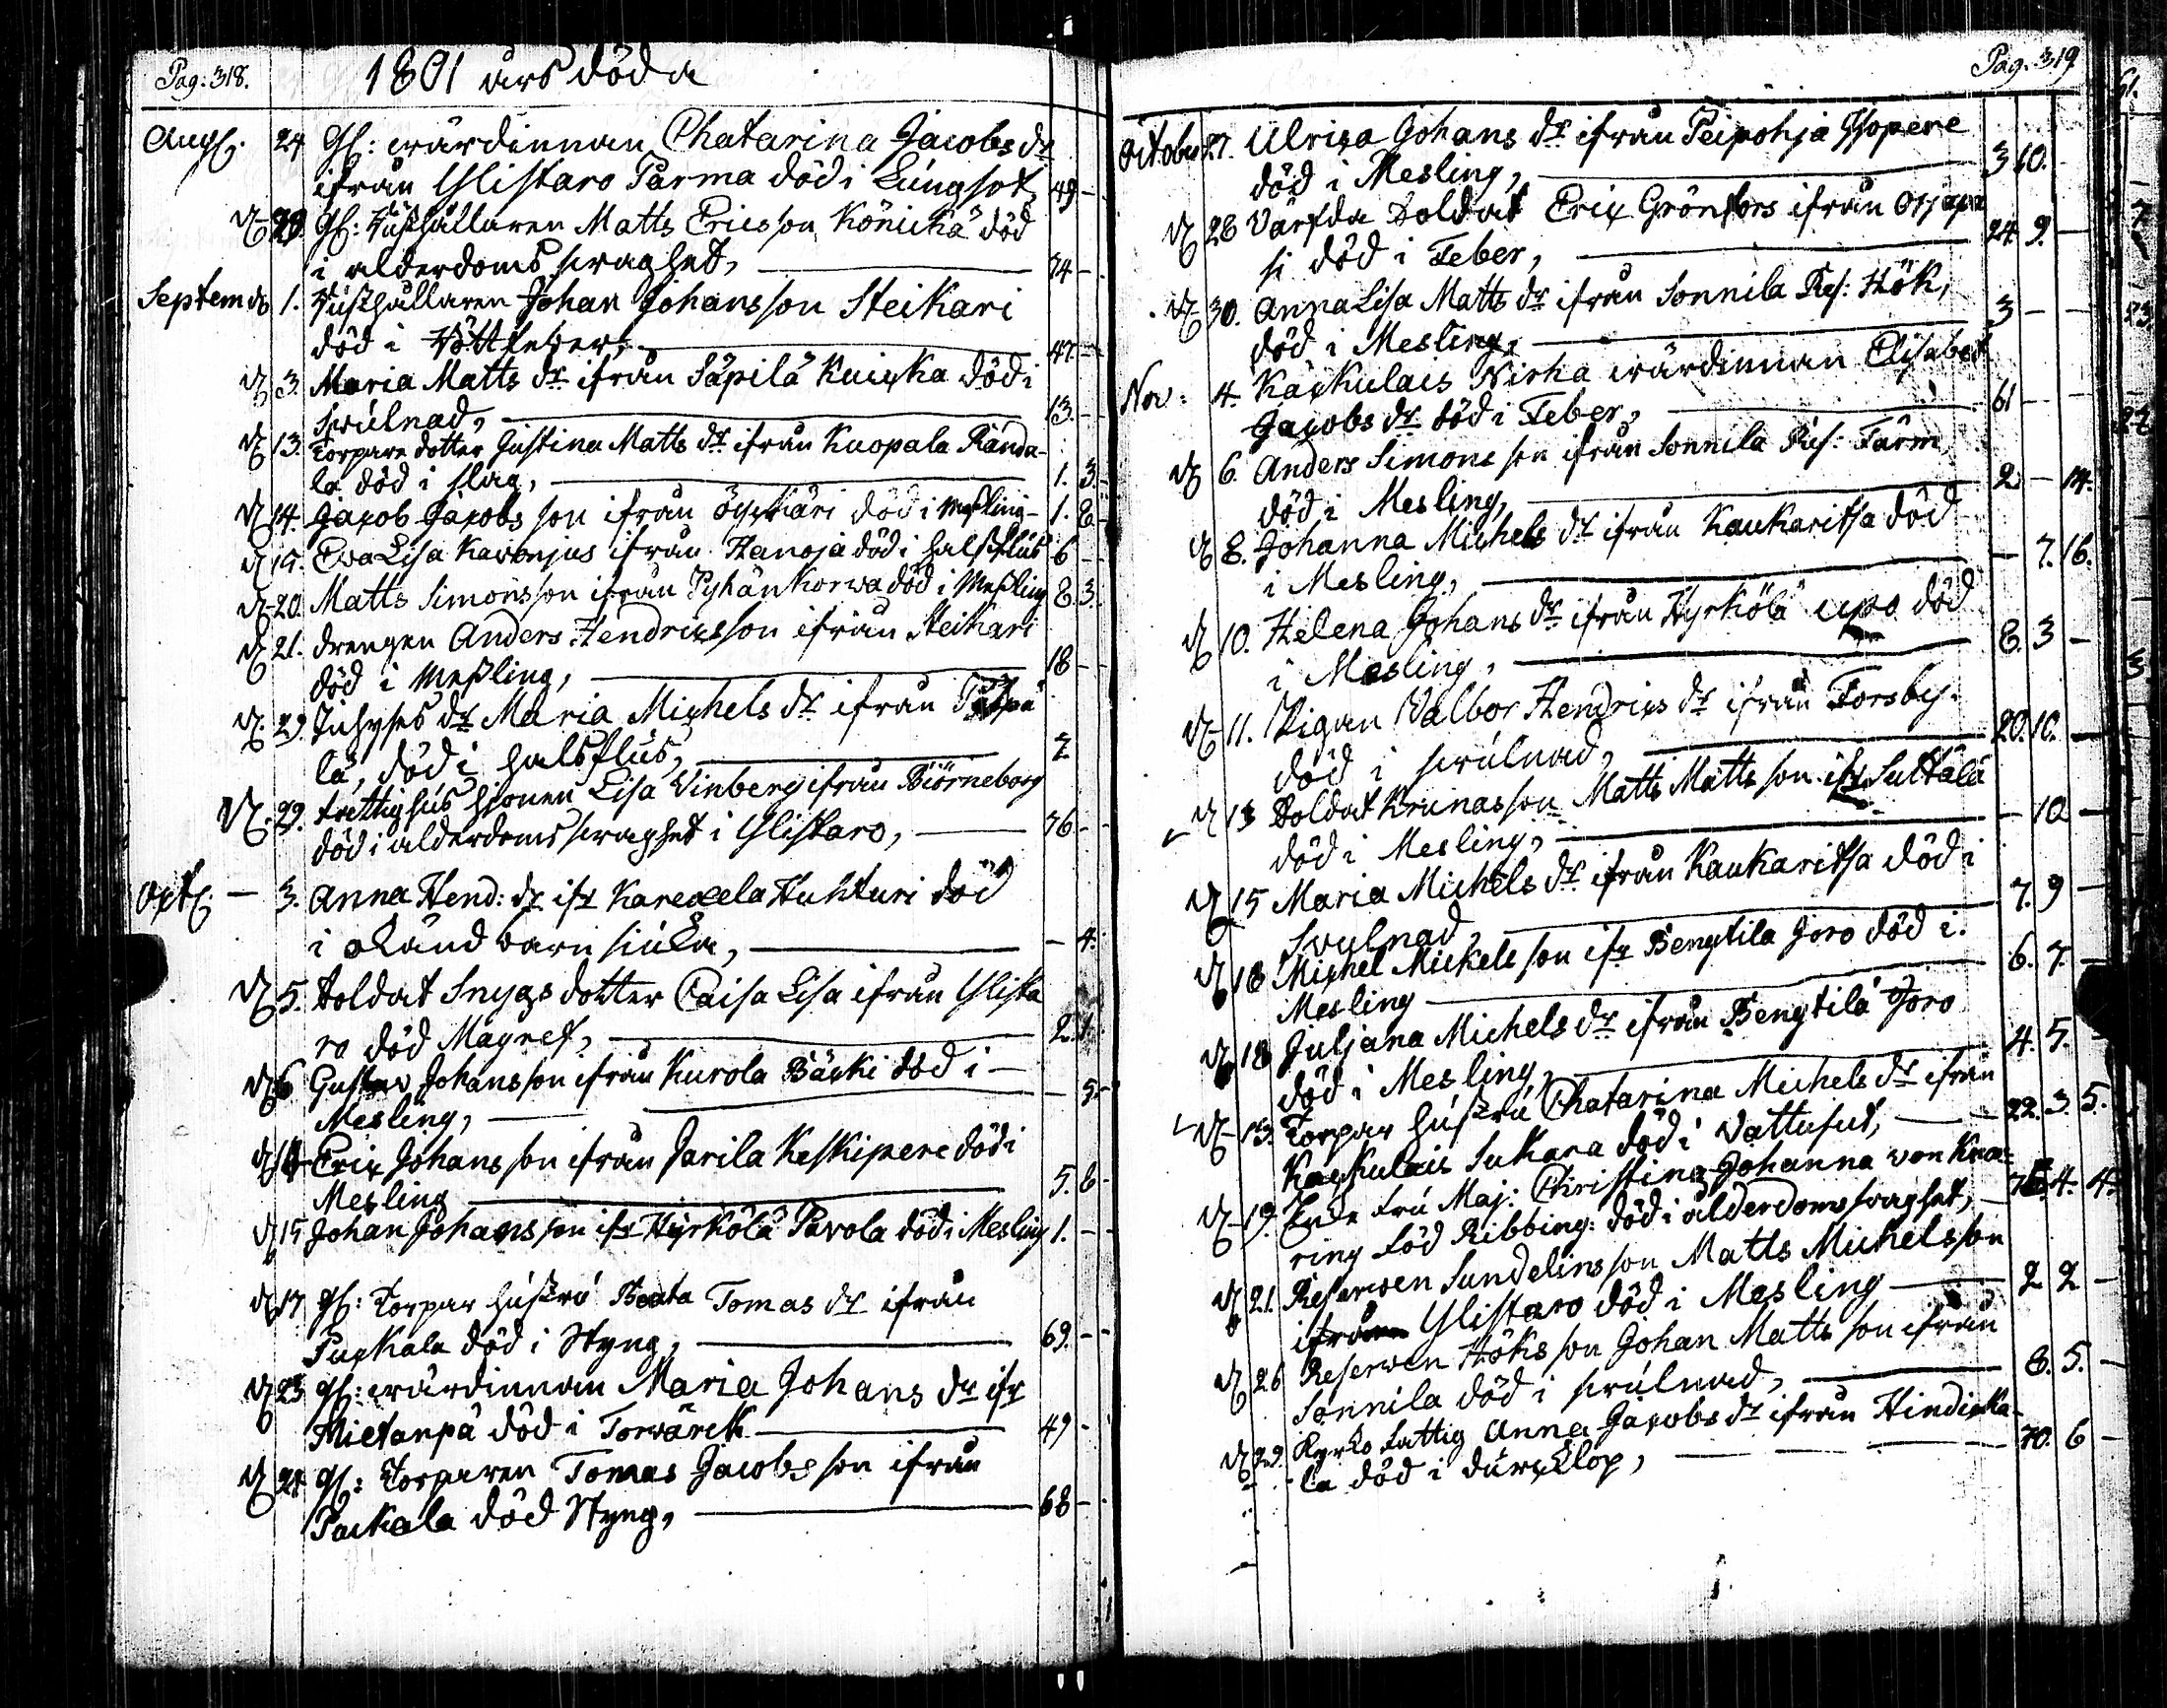 Pag: 318. 1801 års döda
Augs. 24 Gl: wärdinnan Chatarina Jacobs dr
ifrån Ylistaro Parma död i Lúngsot, 49 -
d 29. Gl: Rusthållaren Matts Ericsson Könickä död
i alderdoms swaghet, 74 -
Septemb 1. Rusthållaren Johan Johansson Steikari
död i Röttfeber, 47 -
d 3. Maria Matts dr ifrån Säpilä Kuicka död i
swúlnad, 13. -
d 13. Torpare dotter Justina Matts dr ifrån Kuopala Rända-
la död i slag, 1. 3.
d 14. Jacob Jacobs son ifrån död i Messling 1. 8
d 15. Eva Lisa Kavonjus ifrån Hanoja död i halsflús 6 -
d 20. Matts Simonsson ifrån Pyhänkorwa död i Messling 8. 3.
d 21. drengen Anders Hendricsson ifrån Steikari
död i Messling, 18 -
d. 29. Maria Michels dr ifrån
lä, död i halsflús,
d. 29. fattighús hionen Lisa Vinberg ifrån Biörneborg
död i alderdoms swaghet i Ylistaro, 76 -
Oct. - 3. Anna Hend: dr ifr Karexela Huhturi död
i okänd barn siúka, - 4.
d 5. Soldat Snygs dotter Caisa Lisa ifrån Ylista
ro död Magref, 2. 1.
d 6 Gustav Johansson ifrån Kurola Bäcki död i -
Mesling, - 5.
d Eric Johans son ifrån Jarila Keskipere död i
Mesling 5. 6 -
d 15 Johan Johans son ifr Hyrkölä Pavola död i Mesling 1. -
d 17 gl: Torpar hústrú Beata Tomas dr ifrån
Puckala död i Styng, 69. -
d 23 gl: wärdinnan Maria Johans dr ifr
Mietanpä död i Torwärck 49 -
d 24 gl: Torparen Tomas Jacobs son ifrån
Puckala död Styng, 68 -
Pag. 319
October 27. Ulrica Johans dr ifrån Peipohja
död i Mesling, 3 10.
d 28 Värfda Soldat Eric Grönfors ifrån
si död i Feber, 24 9. -
d 30. Anna Lisa Matts dr ifrån Sonnila Res: Hök,
död i Mesling, 3 - -
Nov: 4. Käckulais Nisha wärdinnan Elisabet
Jacobs dr död i Feber, 61 - -
d 6. Anders Simons son ifrån Sonnila Res: Farm,
död i Mesling, 2 - 14.
d 8. Johanna Michels dr ifrån Kaukaritsa död
i Mesling, - 7. 16.
d 10. Helena Johans dr ifrån Hyrkölä upo död
i Mesling, 8. 3 -
d 11. Pigan Valbor Hendrics dr ifrån Forsby.
död i swúlnad, 20. 10. -
d 13 Soldat Krunas son Matts Matts son ifr Suttala
död i Mesling, - 10 -
d 15 Maria Michels dr ifrån Kaukaritsa död i
Svulnad, 7. 9 -
d 18 Michel Mickels son ifr Bengtila Joro död i.
Mesling 6. 7. -
d 18 Juljana Michels dr ifrån Bengtilä Joro
död i Mesling, 4. 5. -
d 13. Torpar hústrú Chatarina Michels dr ifrån
Kackulais Sukara död i Vattusut, 22. 3. 5.
d 19. Enke frú Maj: Christina Johanna von Kna-
ring född Ribbing: död i alderdoms swaghet, 4. 4.
d 21. Reserwen Sundelins son Matts Michelsson
ifrån Ylistaro död i Mesling 2 2 -
d 26 Reserwen Höks son Johan Matts son ifrån
Sonnila död i swúlnad, 8. 5. -
d 29. Kyrko fattig Anna Jacobs dr ifrån Hindicka-
la död i dúrcklop, 70. 6 -